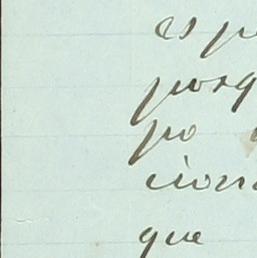 es p
porq
po
cion
que